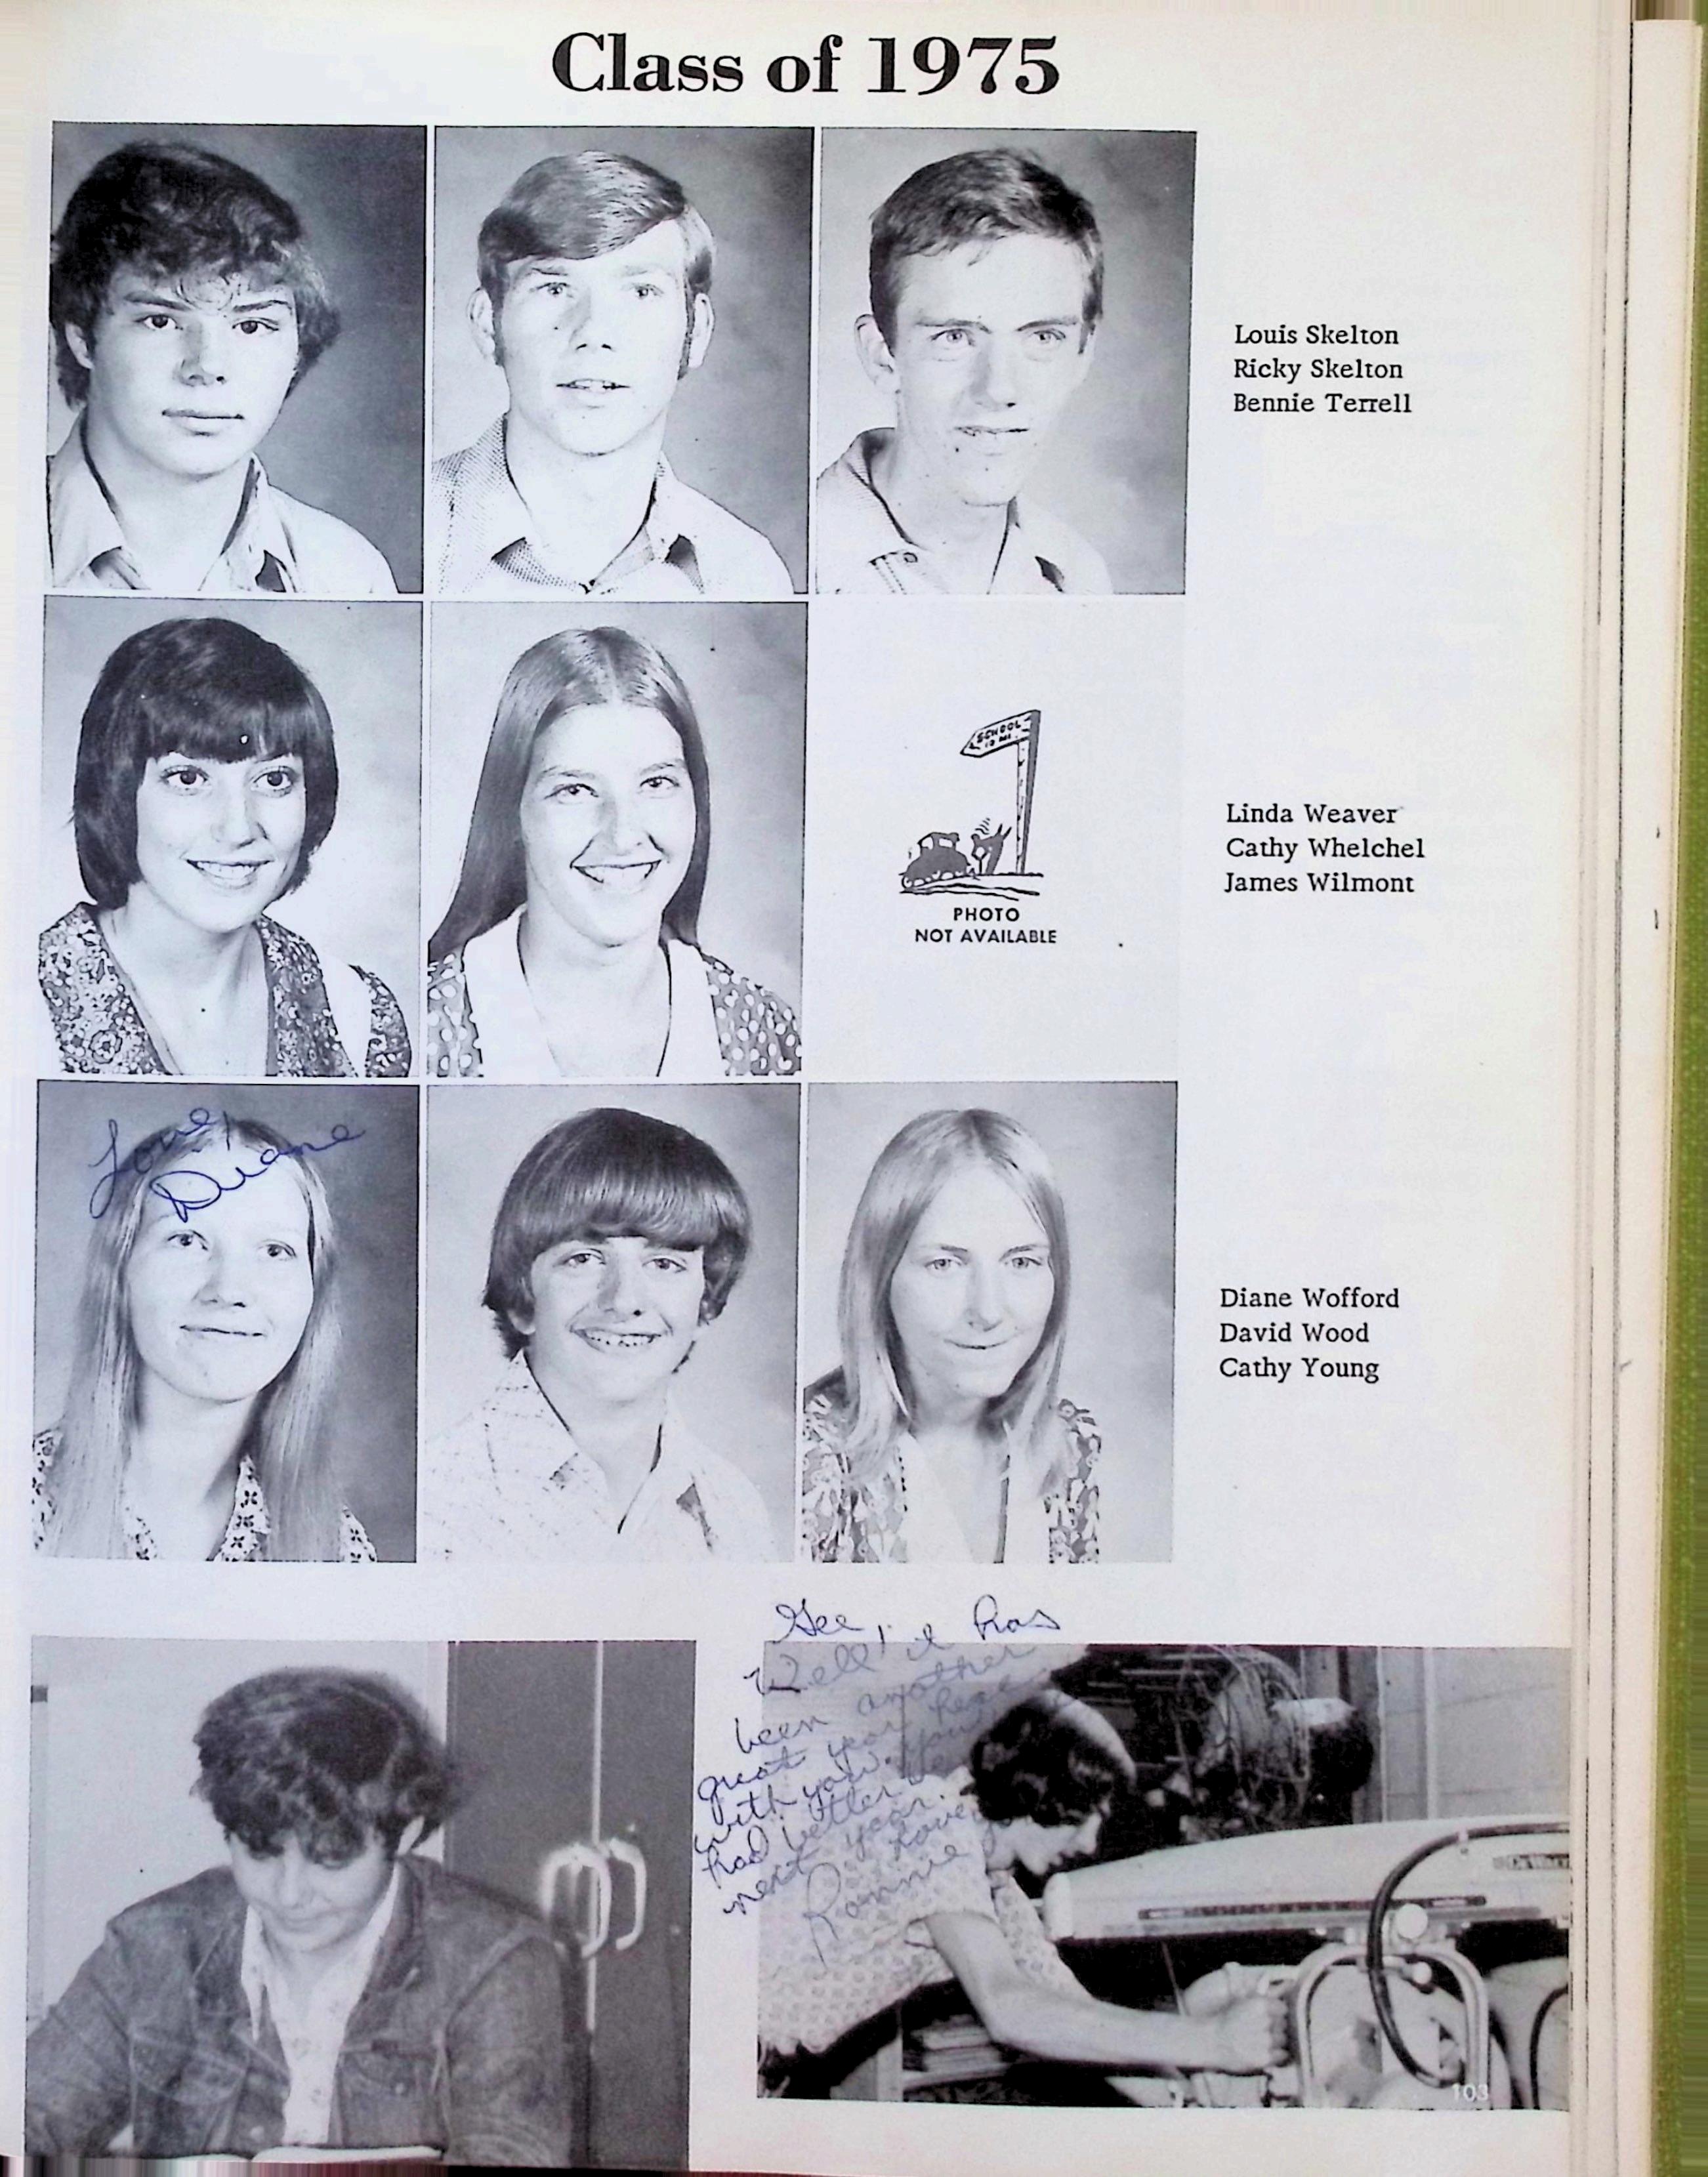 Class of 1975
Louis Skelton
Ricky Skelton
Bennie Terrell
SCHOOL
10 MI.
PHOTO
NOT AVAILABLE
Linda Weaver
Cathy Whelchel
James Wilmont
Love,
Diane
Diane Wofford
David Wood
Cathy Young
Gee,
Well! it has
been another
great year here
with you. You
had better be
next year.
Love ya
Ronnie
DeWALT
103